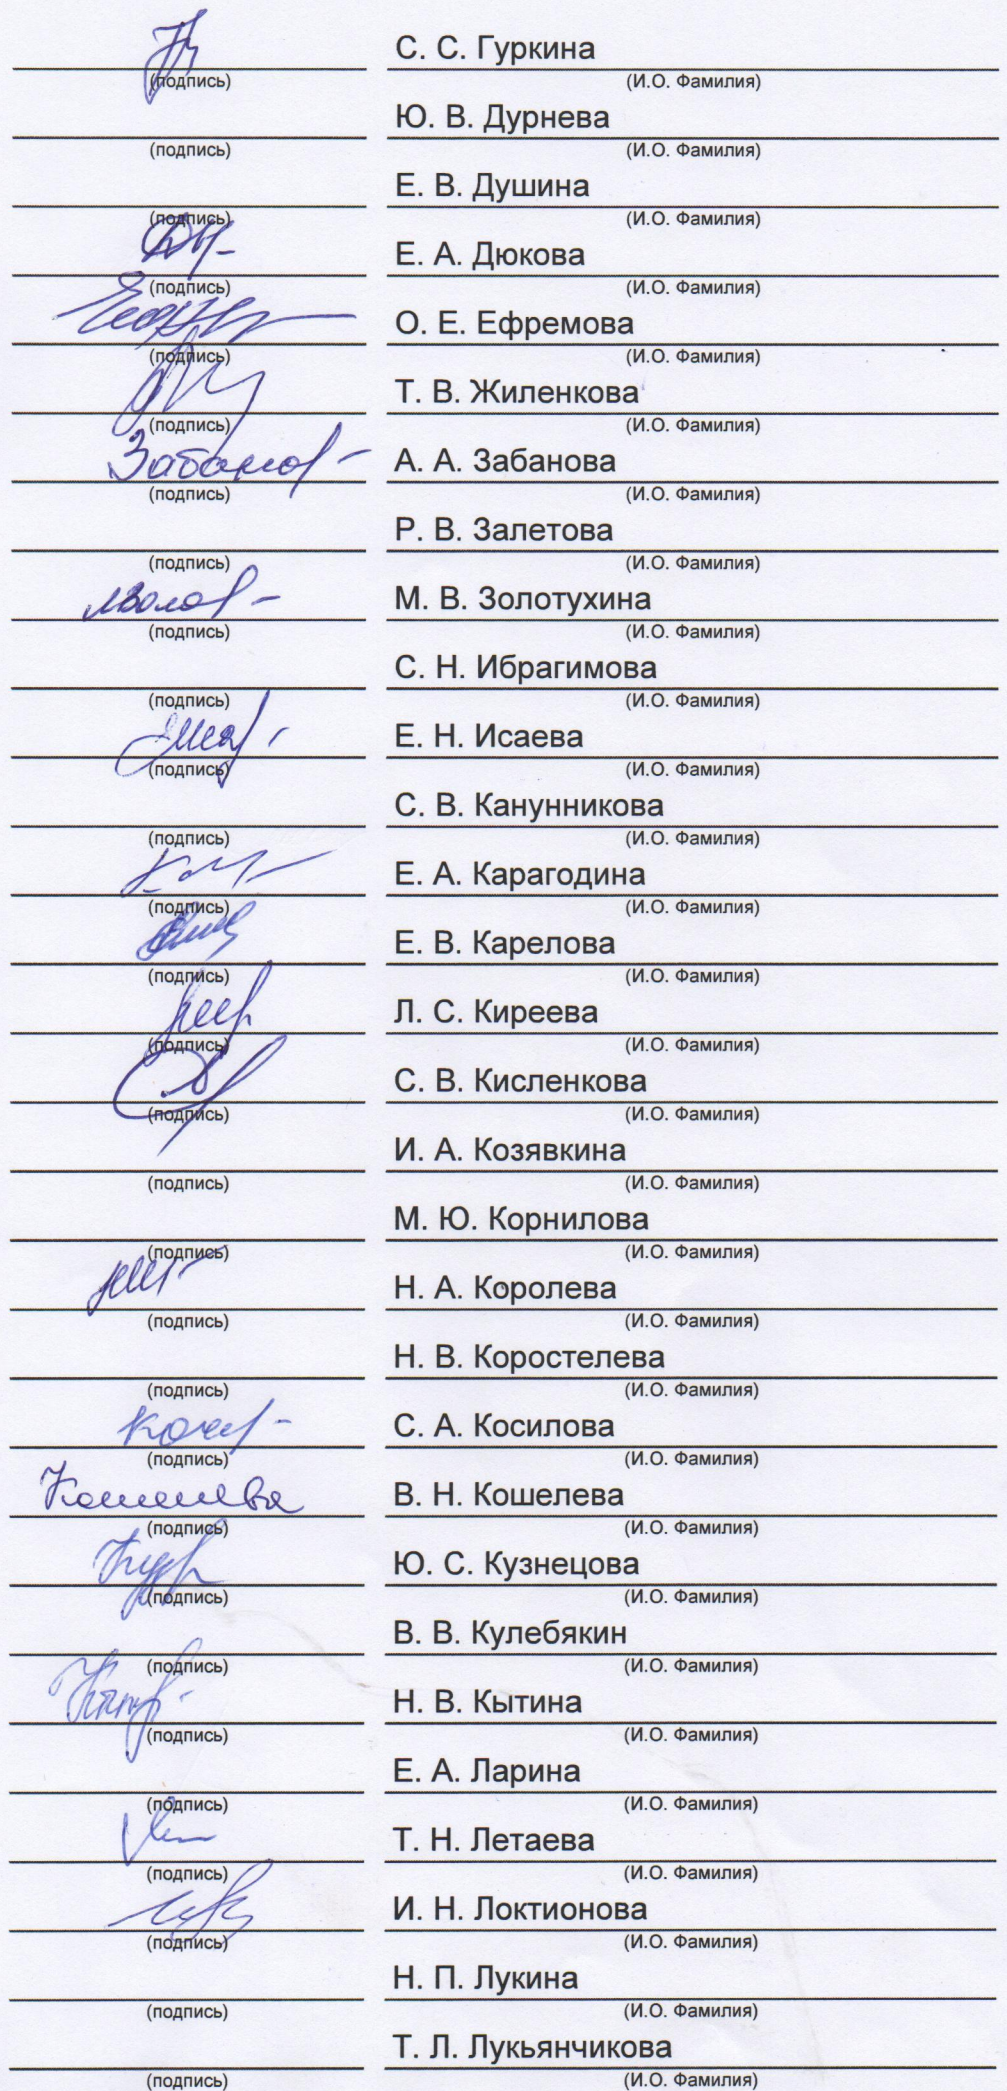 С. С. Гуркина
(подпись) (И.О. Фамилия)
Ю. В. Дурнева
(подпись) (И.О. Фамилия)
Е. В. Душина
(подпись) (И.О. Фамилия)
Е. А. Дюкова
(подпись) (И.О. Фамилия)
О. Е. Ефремова
(подпись) (И.О. Фамилия)
Т. В. Жиленкова
(подпись) (И.О. Фамилия)
А. А. Забанова
(подпись) (И.О. Фамилия)
Р. В. Залетова
(подпись) (И.О. Фамилия)
М. В. Золотухина
(подпись) (И.О. Фамилия)
С. Н. Ибрагимова
(подпись) (И.О. Фамилия)
Е. Н. Исаева
(подпись) (И.О. Фамилия)
С. В. Канунникова
(подпись) (И.О. Фамилия)
Е. А. Карагодина
(подпись) (И.О. Фамилия)
Е. В. Карелова
(подпись) (И.О. Фамилия)
Л. С. Киреева
(подпись) (И.О. Фамилия)
С. В. Кисленкова
(подпись) (И.О. Фамилия)
И. А. Козявкина
(подпись) (И.О. Фамилия)
М. Ю. Корнилова
(подпись) (И.О. Фамилия)
Н. А. Королева
(подпись) (И.О. Фамилия)
Н. В. Коростелева
(подпись) (И.О. Фамилия)
С. А. Косилова
(подпись) (И.О. Фамилия)
Кошелева В. Н. Кошелева
(подпись) (И.О. Фамилия)
Ю. С. Кузнецова
(подпись) (И.О. Фамилия)
В. В. Кулебякин
(подпись) (И.О. Фамилия)
Н. В. Кытина
(подпись) (И.О. Фамилия)
Е. А. Ларина
(подпись) (И.О. Фамилия)
Т. Н. Летаева
(подпись) (И.О. Фамилия)
И. Н. Локтионова
(подпись) (И.О. Фамилия)
Н. П. Лукина
(подпись) (И.О. Фамилия)
Т. Л. Лукьянчикова
(подпись) (И.О. Фамилия)